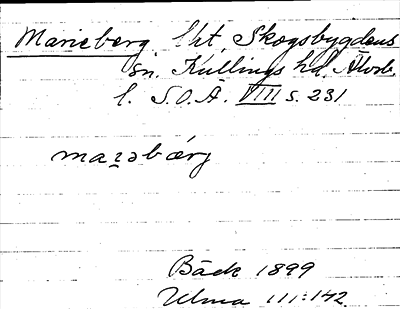 Marieberg lht, Skogsbygdens
sn. Kullings hd. Älvsb.
l. S.O.Ä. VIII s. 231
marəbærg
Bäck 1899
Ulma 111:142.